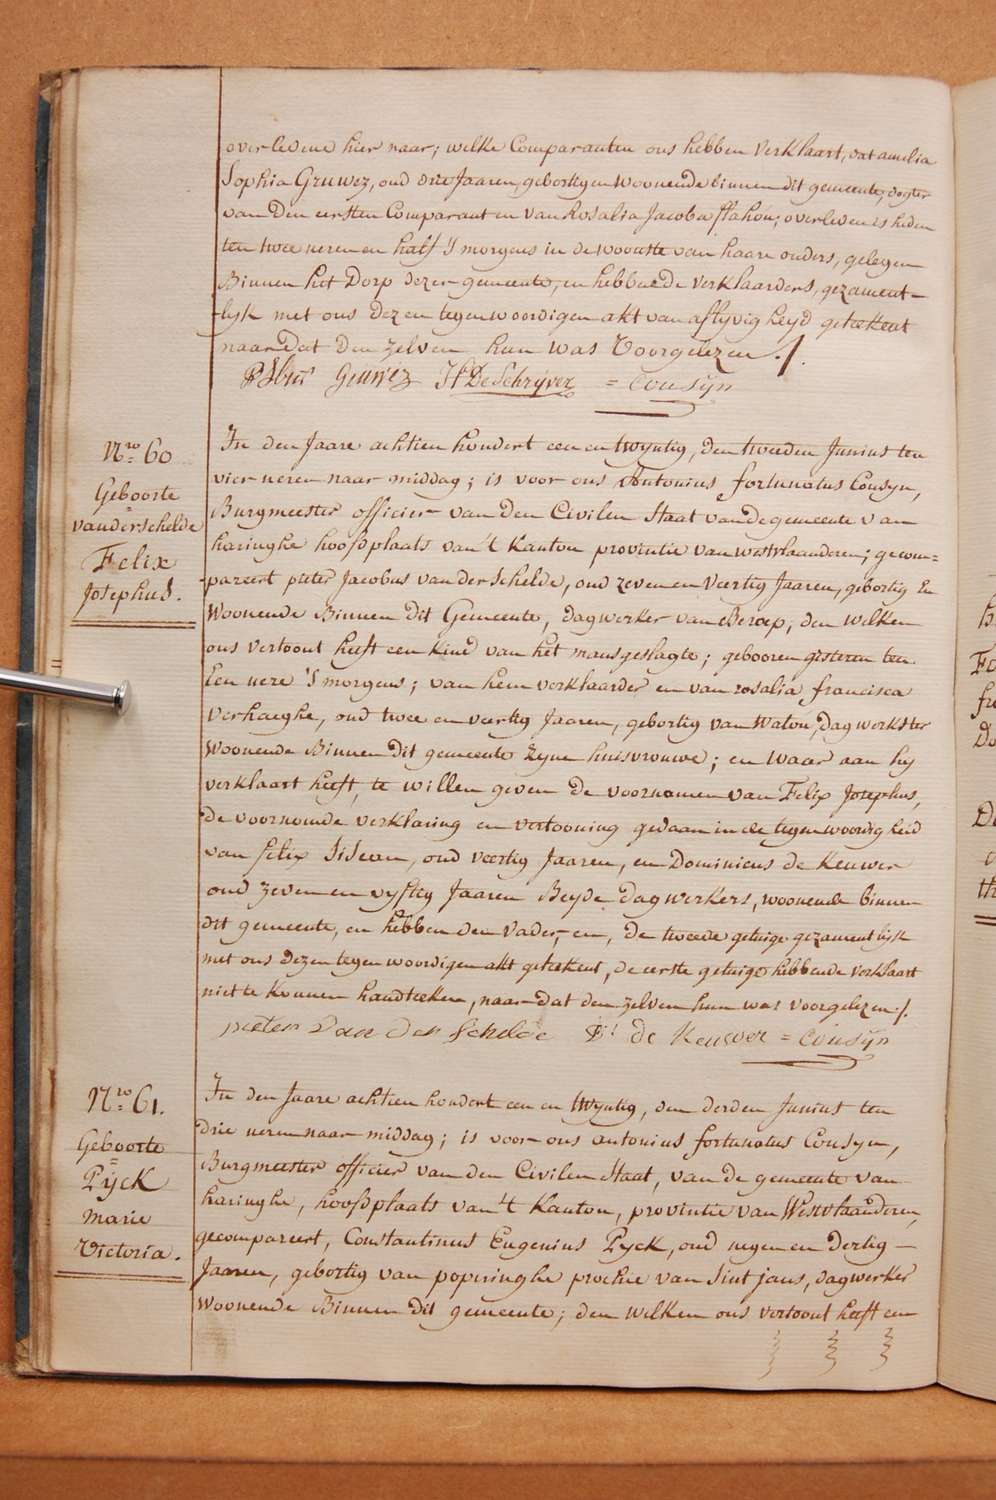 overledene hier naar; welke Comparanten ons hebben verklaart, dat amelia
Sophia Gruwez, oud drie Jaaren, gebortig en Woonende binnen dit gemeente, dogter
van den eersten Comparant en van Rosalia Jacoba ; overleden is heden
ten twee ueren en half 's morgens in de woonste van haare ouders, gelegen
Binnen het Dorp dezer gemeente, en hebben de verklaarders, gezament-
-lyk met ons dezen tegenwoordigen akt van aflyvigheyd geteekent
naar dat den zelven hun was Voorgelezen ./.
Gruwéz De Schryver = Cousyn
Nro 60
Geboorte
=
vanderschelde
Felix
Josephus.
In den Jaare achtien hondert een en twyntig, den tweeden Junius ten
vier ueren naar middag; is voor ons Antonius fortunatus Cousyn,
Burgmeester officier van den Civilen Staat van de gemeente van
haringhe hoofdplaats van 't Kanton provintie van westvlaanderen; gecom=
pareert pieter Jacobus van der Schelde, oud zeven en Veertig Jaaren, gebortig En
Woonende Binnen dit Gemeente, dagwerker van Beroep, den welken
ons vertoont heeft een kind van het mansgeslagte; gebooren gisteren ten
Een uere 's morgens; van hem verklaarder en van rosalia francisca
Verhaeghe, oud twee en veertig Jaaren, gebortig van Watou, dagwerkster
Woonende Binnen dit gemeente zyne huisvrouwe; en waar aan hy
verklaart heeft, te willen geven de voornamen van Felix Josephus,
de voornoemde verklaring en vertooning gedaan in de tegenwoordigheid
van felix , oud veertig Jaaren, en Dominicus de Keuwer
oud zeven en vyftig Jaaren Beyde dagwerkers, woonende binnen
dit gemeente, en hebben den vader, en, de tweede getuige gezamentlyk
met ons dezen tegenwoordigen akt geteekent, de eerste getuige hebbende verklaart
niet te konnen handteeken, naar dat den zelven hun was voorgelezen ./.
pieter Van der Schelde de Keuwer = Cousyn
Nro 61.
Geboorte
=
Pyck
Marie
Victoria.
In den Jaare achtien hondert een en twyntig, den derden Junius ten
drie ueren naar middag; is voor ons antonius fortunatus Cousyn,
Burgmeester officier van den Civilen Staat, van de gemeente van
haringhe, hoofdplaats van 't Kanton, provintie van Westvlaanderen,
gecompareert, Constantinus Eugenius Pyck, oud negen en Dertig
Jaaren, gebortig van popringhe prochie van Sint jans, dagwerker
Woonende Binnen dit gemeente; den welken ons vertoont heeft een